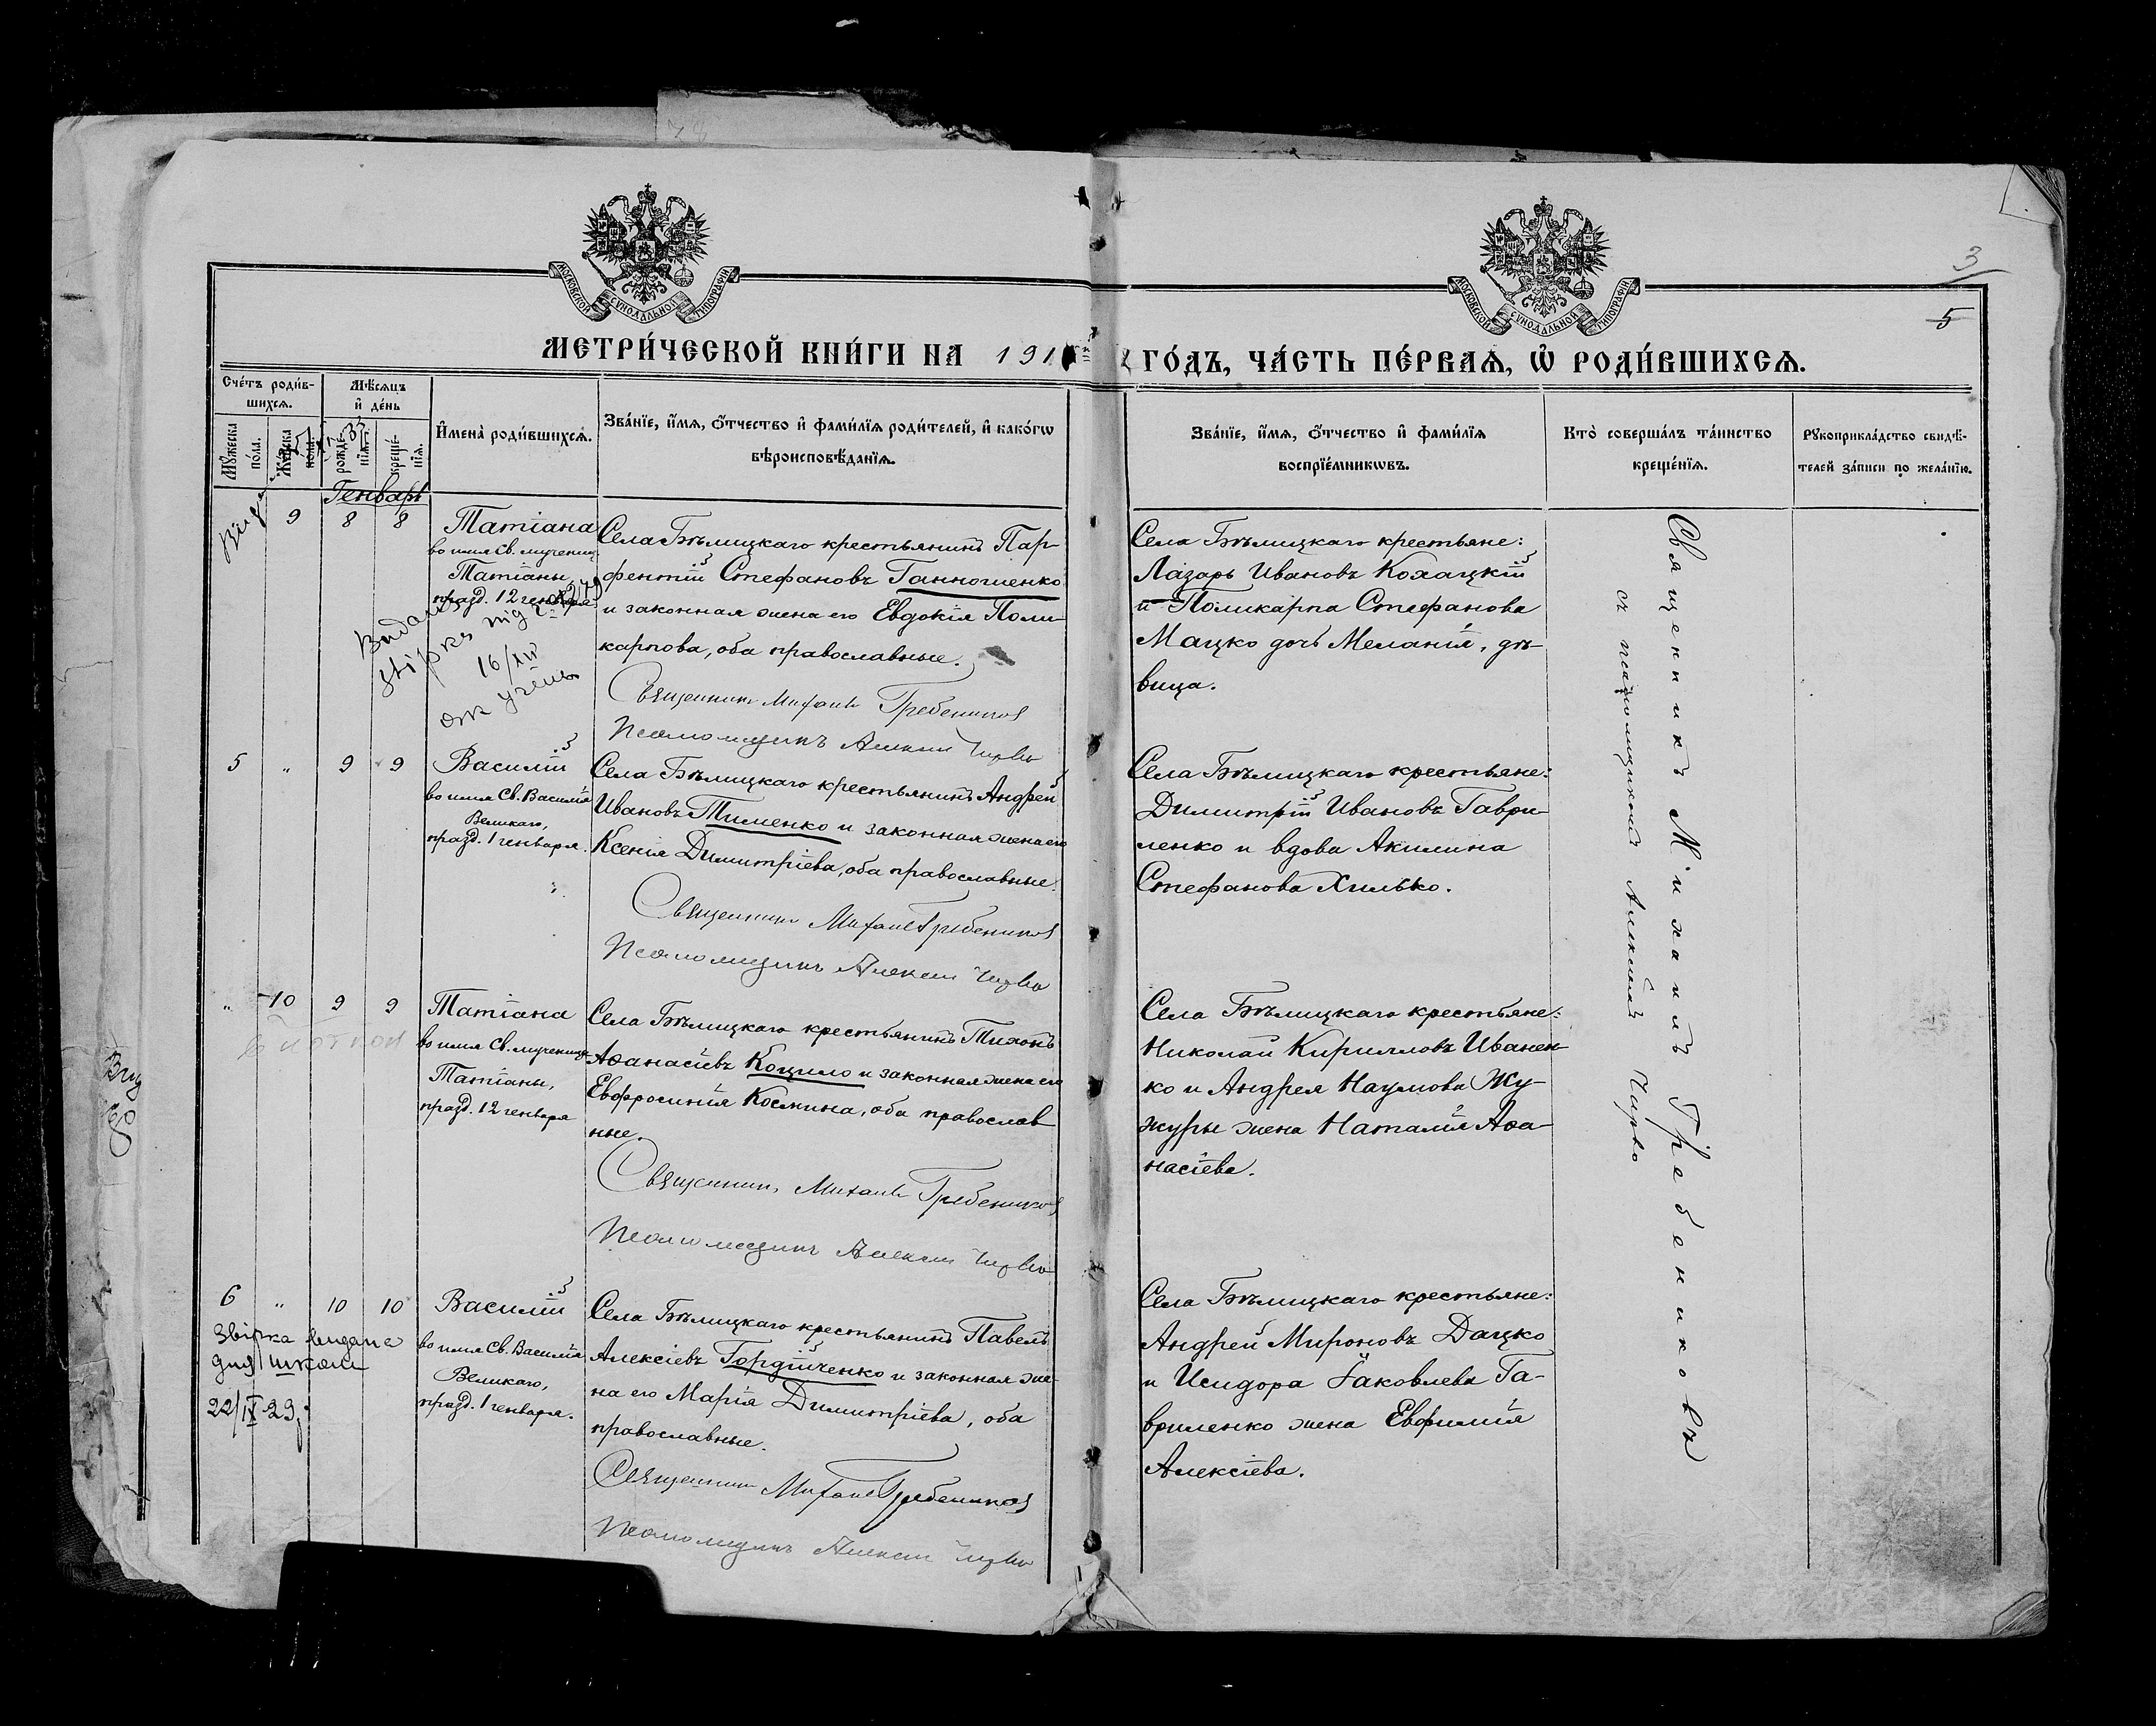 3
5
МОСКОВСКОЙ СѴНОДАЛЬНОЙ ТИПОГРАФІИ
МОСКОВСКОЙ СѴНОДАЛЬНОЙ ТИПОГРАФІИ
МЕТРИ́ЧЕСКОЙ КНИ́ГИ НА 191
ГО́ДЪ, ЧА́СТЬ ПЕ́РВАѦ, Ѡ҆ РОДИ́ВШИХСѦ.
Сче́тъ роди́в-
шихсѧ.
Мѣ́сѧцъ
и҆ де́нь
Мꙋ́жеска
по́ла.
Же́нска
по́ла.
рожде́-
нїѧ.
креще́-
нїѧ.
И҆мена̀ роди́вшихсѧ.
Зва́нїе, и҆́мѧ, ѻ҆́тчество и҆ фами́лїѧ роди́телей, и҆ како́гѡ
вѣроисповѣ́данїѧ.
Зва́нїе, и҆́мѧ, ѻ҆́тчество и҆ фами́лїѧ
воспрїе́мникѡвъ.
Кто̀ соверша́лъ та́инство
креще́нїѧ.
Рꙋкоприкла́дство свидѣ́-
телей за́писи по жела́нїю.
Генварь
9 8 8
Татіана
во имя Св. мучениц.
Татіаны,
празд. 12 генваря
Села Бѣлицкаго крестьянинъ Пар-
фентій Стефановъ Ганношенко
и законная жена его Евдокія Поли-
карпова, оба православные.
Священникъ Михаилъ Гребениковъ
Псаломщикъ Алексій Чирво
Села Бѣлицкаго крестьяне:
Лазарь Ивановъ Кохацкій
и Поликарпа Стефанова
Мацко дочь Меланія, дѣ-
вица.
16/IV
5 " 9 9
Василій
во имя Св. Василія
Великаго,
празд. 1 генваря.
Села Бѣлицкаго крестьянинъ Андрей
Ивановъ Тименко и законная жена его
Ксенія Димитріева, оба православные.
Священникъ Михаилъ Гребениковъ
Псаломщикъ Алексій Чирво
Села Бѣлицкаго крестьяне:
Димитрій Ивановъ Гаври-
ленко и вдова Акилина
Стефанова Хилько.
" 10 9 9
Татіана
во имя Св. мучениц.
Татіаны,
празд. 12 генваря
Села Бѣлицкаго крестьянинъ Тихонъ
Аѳанасіевъ Коцило и законная жена его
Евфросинія Космина, оба православ
ные.
Священникъ Михаилъ Гребениковъ
Псаломщикъ Алексій Чирво
Села Бѣлицкаго крестьяне:
Николай Кирилловъ Иванен-
ко и Андрея Наумова Жу-
журы жена Наталія Аѳа-
насіева.
6 " 10 10
Василій
во имя Св. Василія
Великаго,
празд. 1 генваря.
Села Бѣлицкаго крестьянинъ Павелъ
Алексіевъ Гордійченко и законная же-
на его Марія Димитріева, оба
православные.
Священникъ Михаилъ Гребениковъ
Псаломщикъ Алексій Чирво
Села Бѣлицкаго крестьяне:
Андрей Мироновъ Дацко
и Исидора Іаковлева Га-
вриленко жена Евфимія
Алексіева.
Звірка видана
для школи
22/IX 29
Священникъ Михаилъ Гребениковъ
съ псаломщикомъ Алексіемъ Чирво